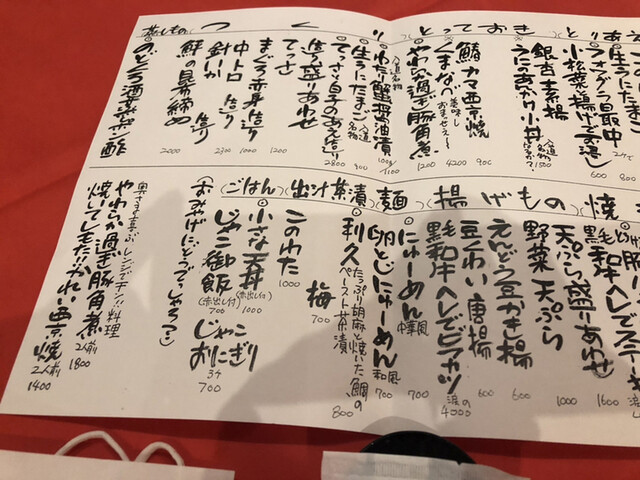 とっておき
つくり
蒸しもの
うにのあかり小丼
銀杏素揚
小松菜揚げてお浸し
鰆カマ西京焼
900
くまなべ 美味し
4200
やわらか過ぎ豚角煮
1200
わたり蟹醤油漬
生うにたまご
900
てっさと白子のあえ造り
2800
造り盛りあわせ
てっさ
1200
まぐろ赤身造り
1000
中トロ造り
2300
鮃の昆布締め
2000
のどぐろ酒蒸ポン酢
焼
揚げもの
麺
(ごはん)(出汁茶漬)
天ぷら盛りあわせ
1600
野菜天ぷら
1000
えんどう豆かき揚
600
豆くわい唐揚
600
黒毛和牛ヘレビアカツ
4000
にゅーめん 中華風
700
卵とじにゅーめん 和風
700
利久 たっぷり胡麻と焼いた鯛のペースト茶漬
800
梅
700
このわた
1000
小さな天丼 (赤出し付)
1000
じゃこ御飯 (赤出し付)
700
じゃこおにぎり
3ケ
700
(おみやげにどうでしゃろ?)
奥さまも喜ぶ レンジでチン!!料理
やわらか過ぎ豚角煮 2人前
1800
焼いてしもたがれい西京焼 2人前
1400